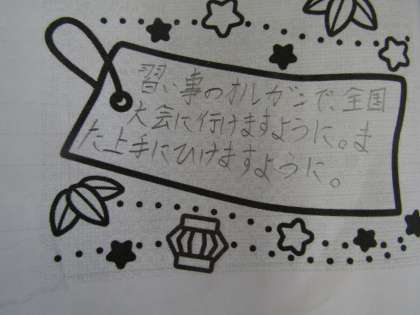 習い事のオルガンで、全国
大会に行けますように。ま
た上手にひけますように。